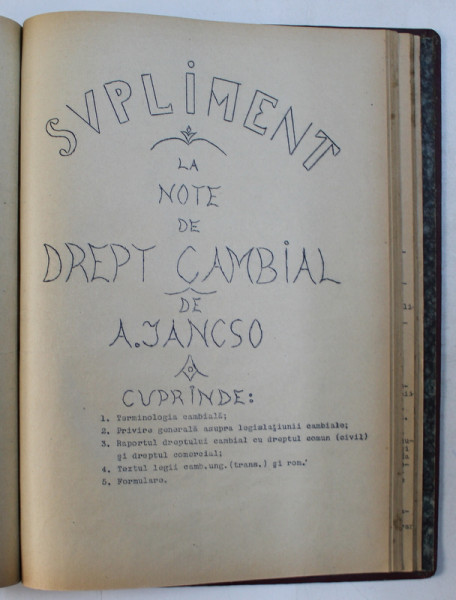 SVPLIMENT
LA
NOTE
DE
DREPT CAMBIAL
DE
A. JANCSO
CVPRINDE:
1. Terminologia cambială;
2. Privire generală asupra legislațiunii cambiale;
3. Raportul dreptului cambial cu dreptul comun (civil)
și dreptul comercial;
4. Textul legii camb.ung.(trans.) și rom.
5. Formulare.